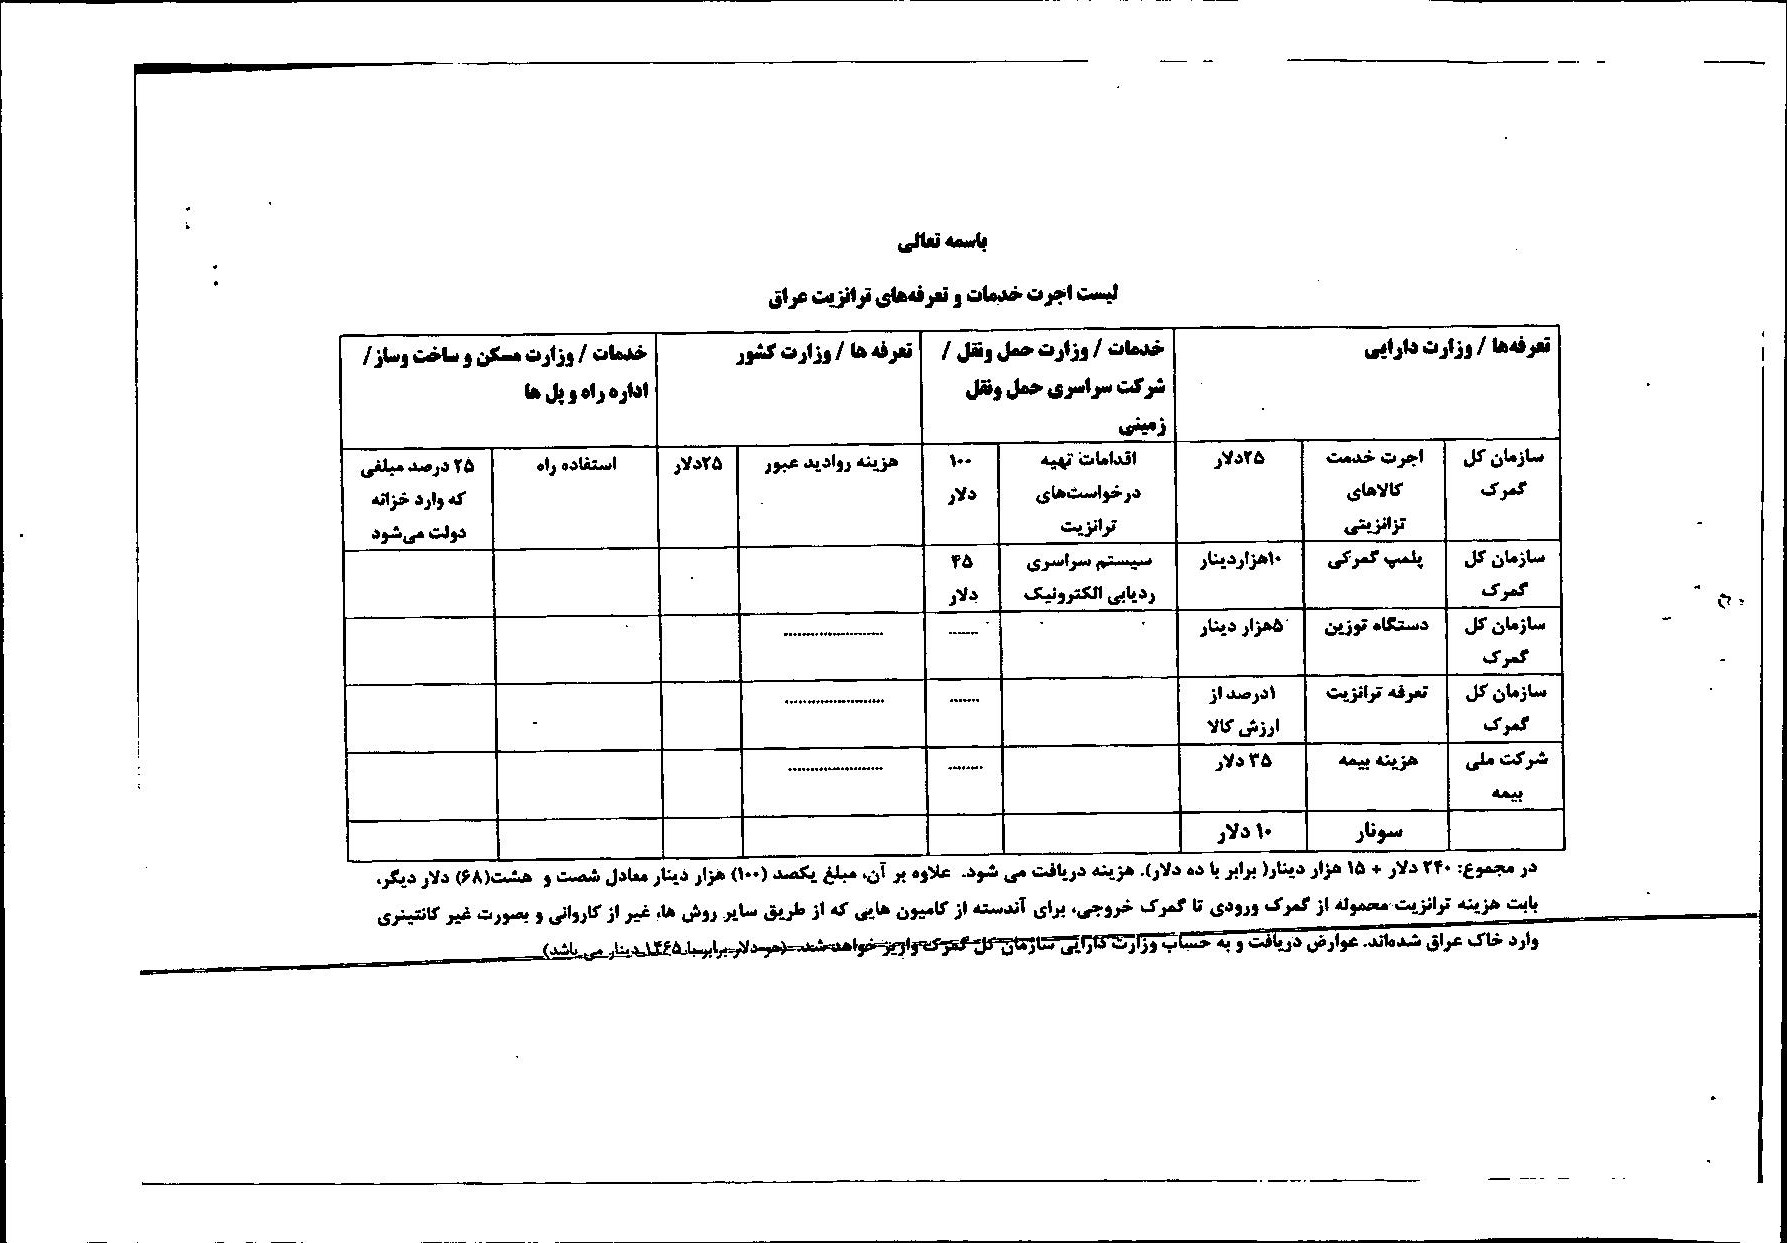 باسمه تعالی
لیست اجرت خدمات و تعرفه‌های ترانزیت عراق
تعرفه‌ها / وزارت دارایی
خدمات / وزارت حمل ونقل /
شرکت سراسری حمل ونقل
زمینی
تعرفه ها / وزارت کشور
خدمات / وزارت مسکن و ساخت وساز /
اداره راه و پل ها
سازمان کل
گمرک
اجرت خدمت
کالاهای
تزانزیتی
۲۵دلار
اقدامات تهیه
درخواست‌های
ترانزیت
۱۰۰
دلار
هزینه روادید عبور
۲۵دلار
استفاده راه
۲۵ درصد مبلغی
که وارد خزانه
دولت می‌شود
سازمان کل
گمرک
پلمپ گمرکی
۱۰هزاردینار
سیستم سراسری
ردیابی الکترونیک
۴۵
دلار
سازمان کل
گمرک
دستگاه توزین
۵هزار دینار
.......
......................
سازمان کل
گمرک
تعرفه ترانزیت
۱درصد از
ارزش کالا
.......
......................
شرکت ملی
بیمه
هزینه بیمه
۳۵ دلار
........
......................
سونار
۱۰ دلار
در مجموع: ۲۴۰ دلار + ۱۵ هزار دینار( برابر با ده دلار). هزینه دریافت می شود. علاوه بر آن، مبلغ یکصد (۱۰۰) هزار دینار معادل شصت و هشت(۶۸) دلار دیگر،
بابت هزینه ترانزیت محموله از گمرک ورودی تا گمرک خروجی، برای آندسته از کامیون هایی که از طریق سایر روش ها، غیر از کاروانی و بصورت غیر کانتینری
وارد خاک عراق شده‌اند. عوارض دریافت و به حساب وزارت دارایی سازمان کل گمرک واریز خواهد شد. (هر دلار برابر با ۱۴۶۵ دینار می باشد)